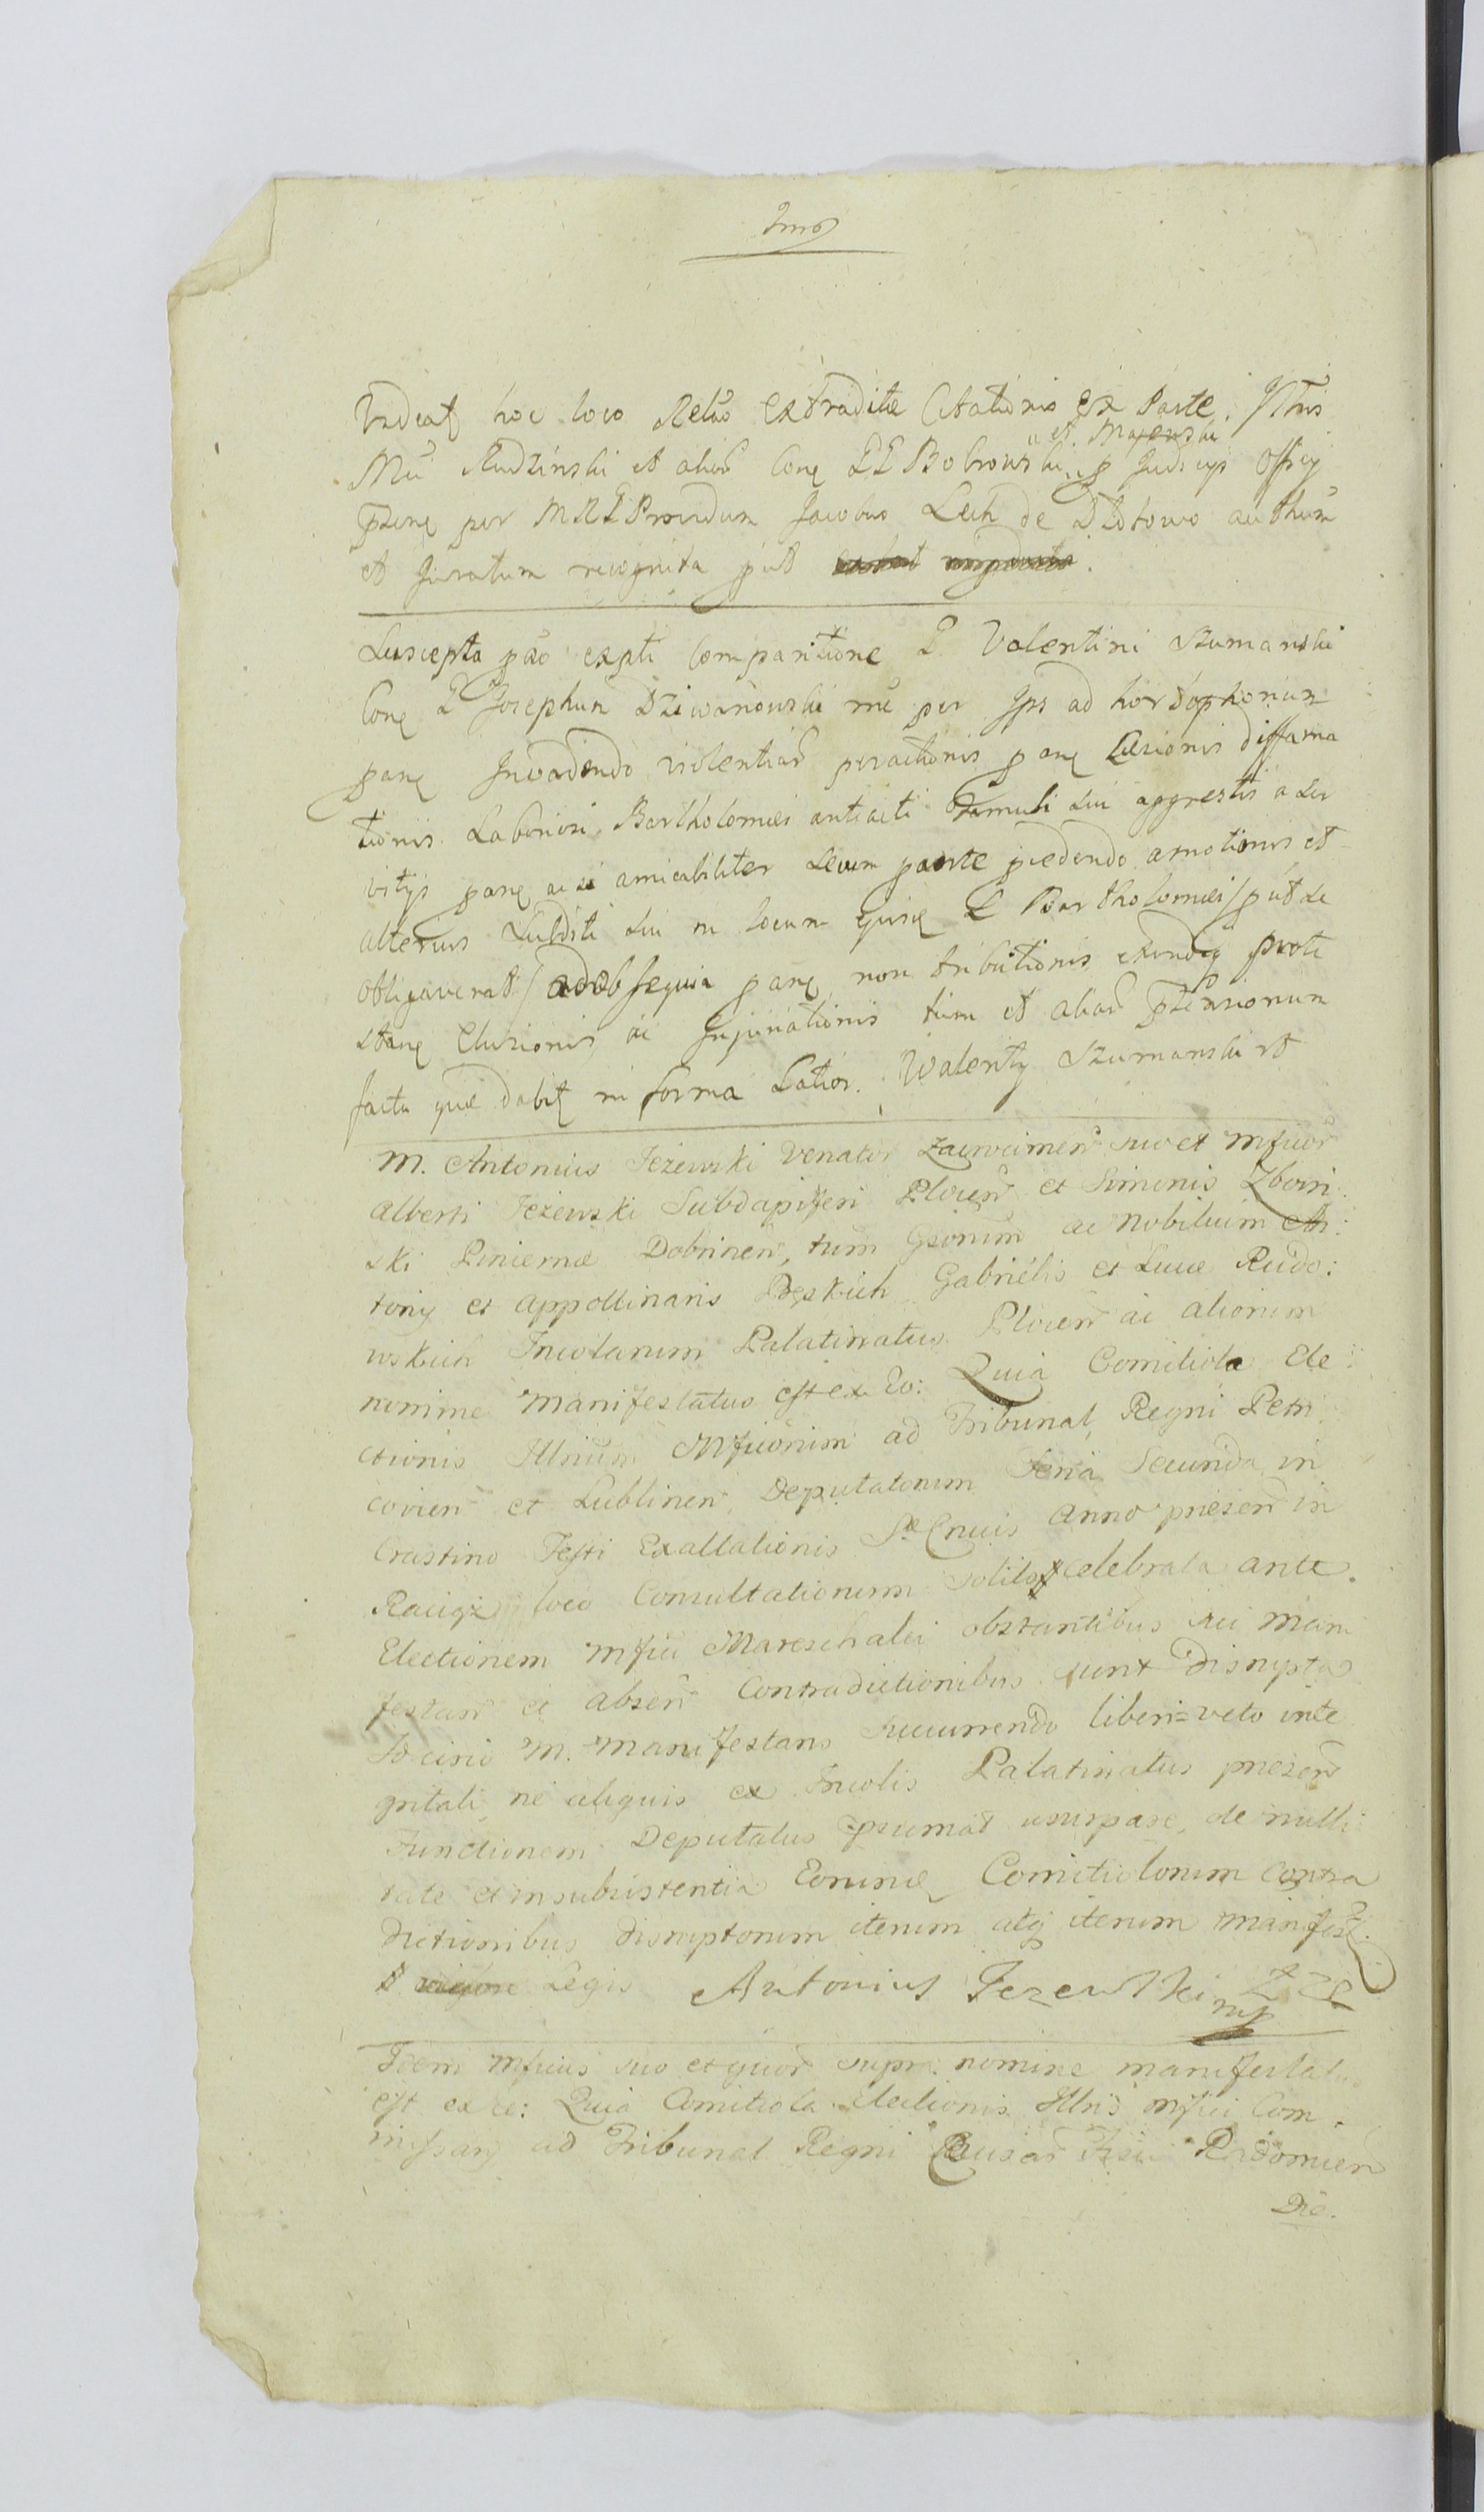 Imo
Videat hoc loco Relão extraditæ Citationis ex Parte
et Majewski
Mci Rudzinski et alior Conq Bobrowski
per Providum Jacobus Lech de Dłotowo authum
et juratum recognita put
Suscepta pão expti comparitione G Valentini Szumanski
Conq G Josephum Dziwanowski ad hortophonium
panq Invadendo violentiar peractionis panq Læsionis diffama
tionis Laboriosi Bartholomæi antiacti famuli sui aggrestis a ser
vitijs panq amicabiliter secum parte amotionis et
alterius Subditi sui in locum ejusq L Bartholomæi / put se
obligaverat / ad obsequia panq non tributionis
Elusionis ac Injuriationis tum et aliar ptensionum
factu quæ dabit in forma Latior. Walenty Szumanski
M. Antonius Jeżewski Venator Zacrocimen suo et Mficor
Alberti Jeżewski Subdapiferi Plocen et Simonis Zboin
ski Pincernæ Dobrinen, tum Gsorum ac Nobilium An:
tonij et Appollinaris Gabrielis et Lucæ Rudo:
wskich Incolarum Palatinatus Plocen ac aliorum
nomine Manifestatus est ex Eo: Quia Comitiola Ele
ctionis Illrium Mficorum ad Tribunal Regni Petri
covien et Lublinen Deputatorum Feria Secunda in
Crastino Festi Exaltationis S. Crucis Anno præsen in
Raciąż loco Consultationum solito celebrata ante
Electionem Mfici Mareschalci obstantibus sui mani
festan et absen Contradictionibus sunt disrupta
Idcirco M. Manifestans succurrendo liberi=veto inte
gritati ne aliquis ex Incolis Palatinatus præsen
Functionem Deputatus præsumat usurpare, de nulli
tate et insubsistentia Eorumq Comitiolorum contra
dictionibus disruptorum iterum atq iterum manifest.
vigore Legis Antonius Jezewski mp
Idem Mficus suo et quor supra nomine manifestatus
est ex eo: Quia Comitiola Electionis Illris Mfici Com
missarij ad Tribunal Regni Causar Fisci Radomien
Die.